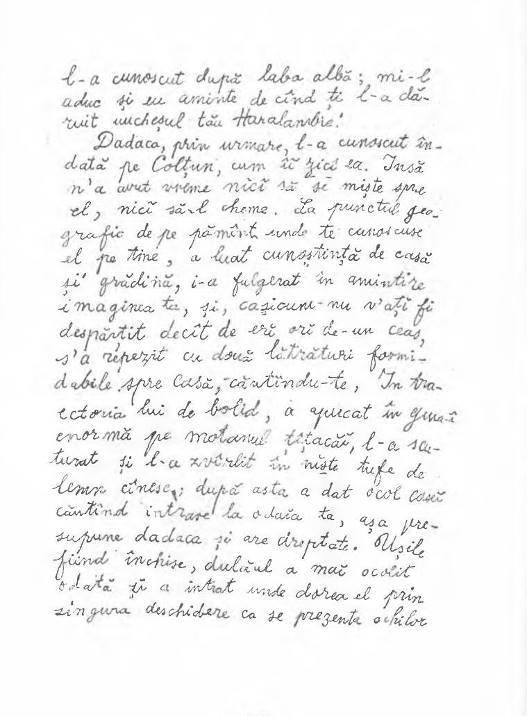 l-a cunoscut după laba albă; mi-l
aduc și eu aminte de cînd ți l-a dă-
ruit unchĕșul tău Haralambie!
Dadaca, prin urmare, l-a cunoscut în-
dată pe Colțun, cum îi zici ea. Însă
n'a avut vreme nicĭ să se miște spre
el, nicĭ să-l cheme. La punctul geo-
grafic de pe pămînt unde te cunoscuse
el pe tine, a luat cunoștință de casă
și grădină, i-a fulgerat în amintire
imaginea ta, și, cașicum nu v'ațĭ fi
despărțit decît de erĭ orĭ de-un ceas,
s'a repezit cu două lătrături formi-
dabile spre casă, căutîndu-te, În tra-
ectoria lui de bolid, a apucat în gura-ĭ
enormă pe motanul țîțacăĭ, l-a scu-
turat și l-a zvîrlit în niște tufe de
lemn cînesc; după asta a dat ocol caseĭ
căutînd intrare la odaĭa ta, așa pre-
supune dadaca și are dreptate. Ușile
fiind închise, dulăul a maĭ ocolit
odată și a intrat unde dorea el prin
singura deschidere ca se prezenta ochilor